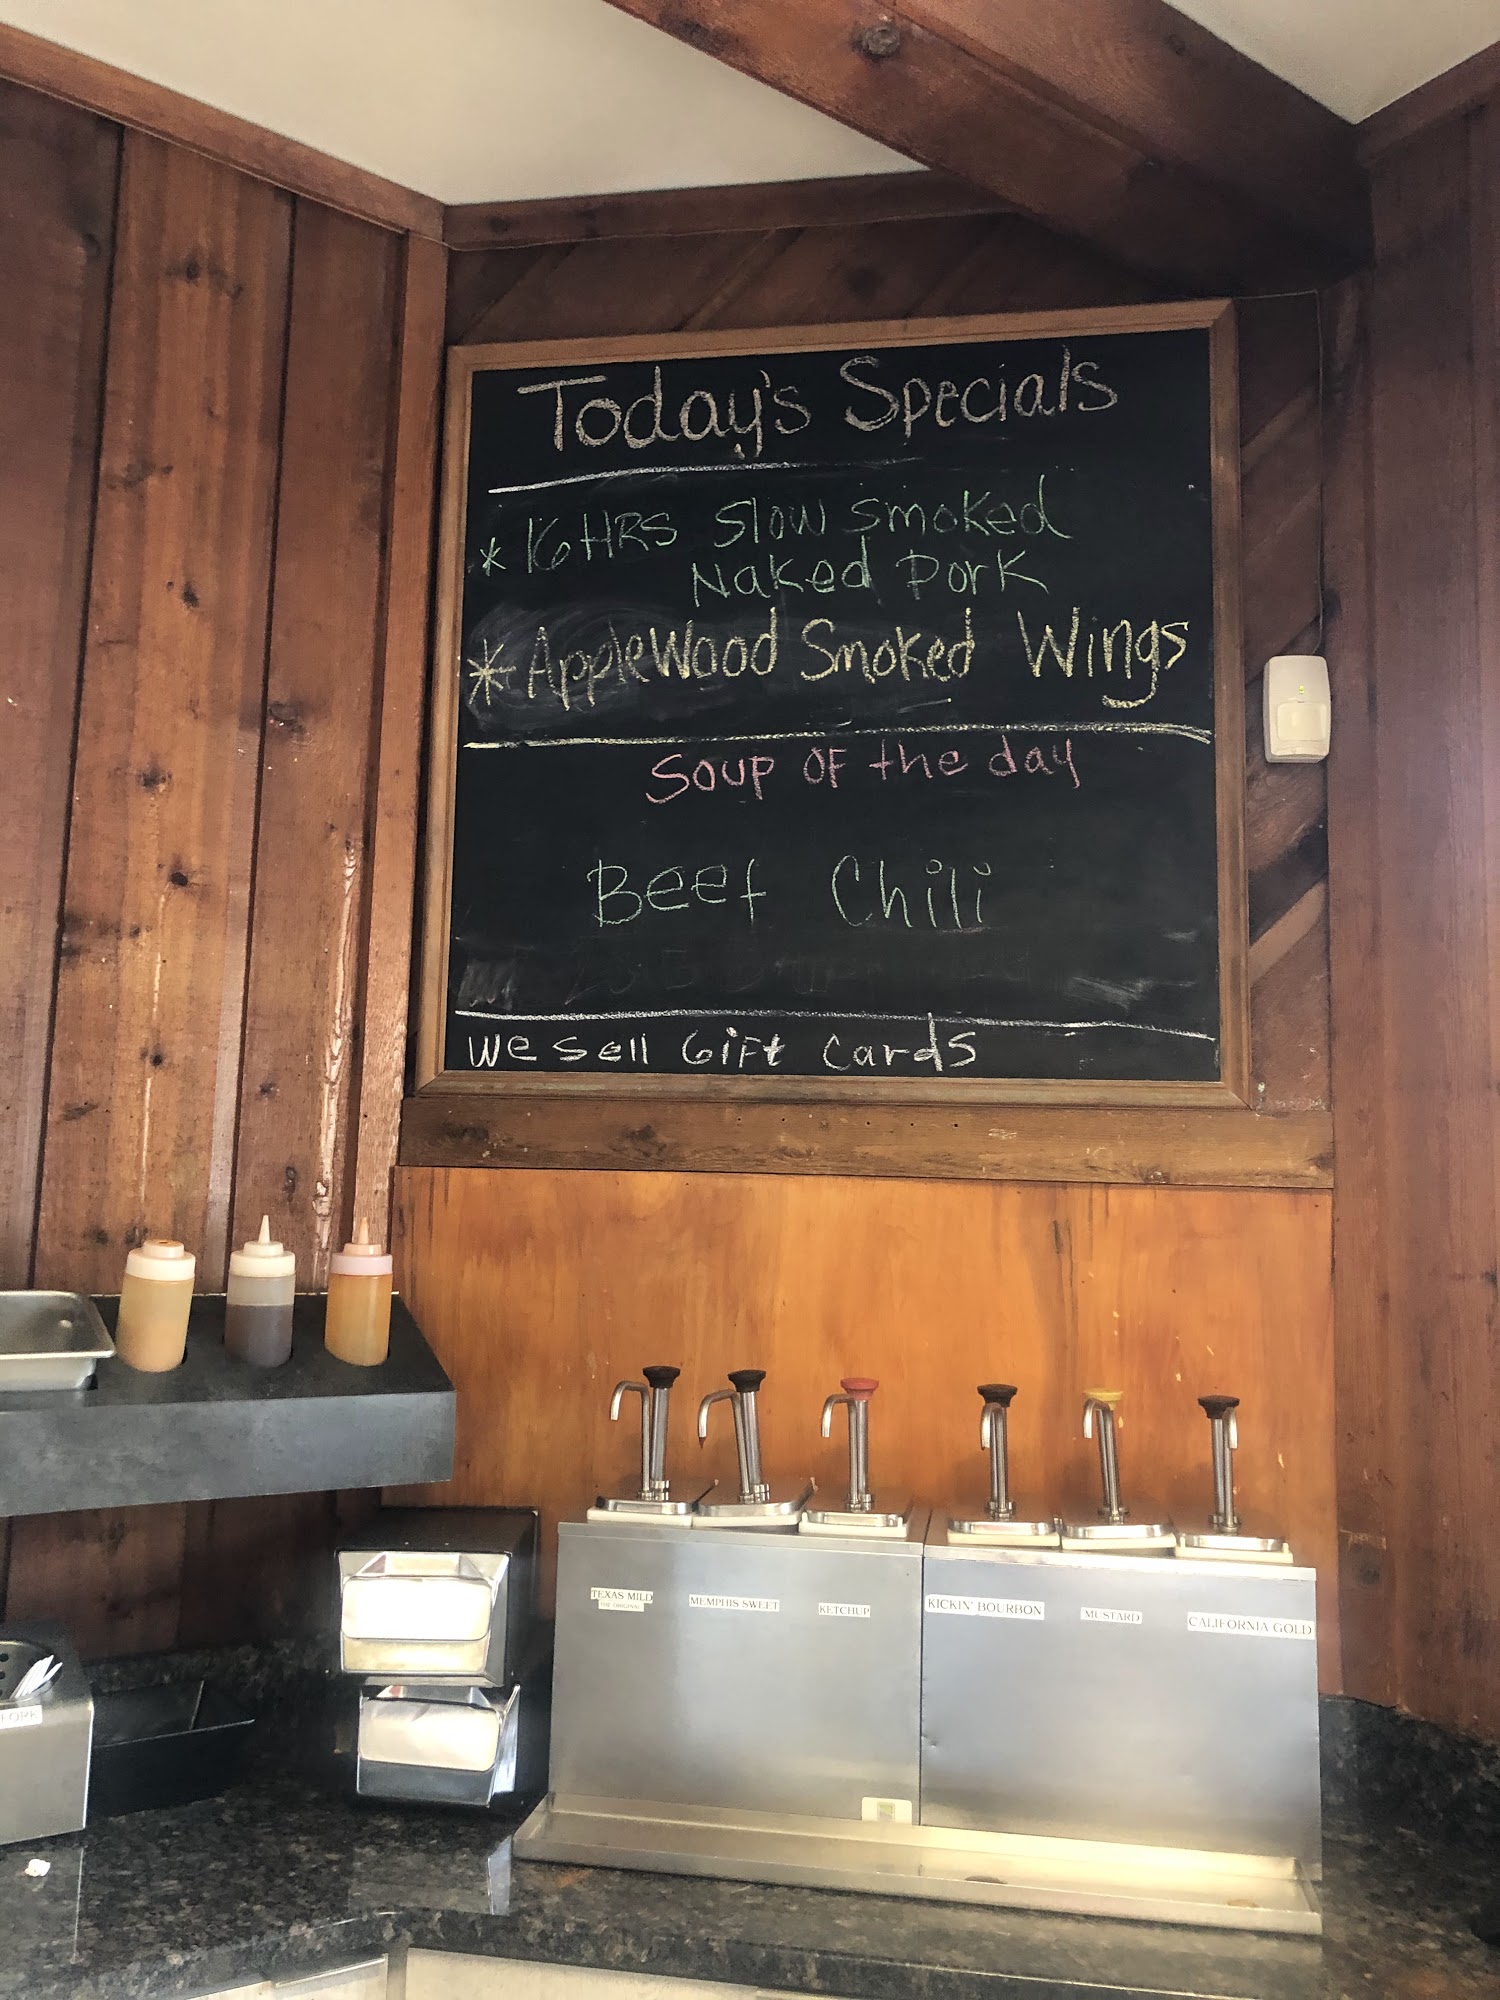 Today's Specials
* 16 HRS Slow Smoked
Naked Pork
* AppleWood Smoked Wings
Soup OF the day
Beef Chili
We Sell Gift Cards
TEXAS MILD
THE ORIGINAL
MEMPHIS SWEET
KETCHUP
KICKIN' BOURBON
MUSTARD
CALIFORNIA GOLD
FORK